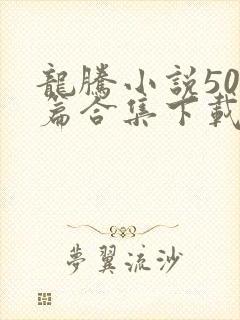 龍騰小説50
篇合集下載
夢翼流沙